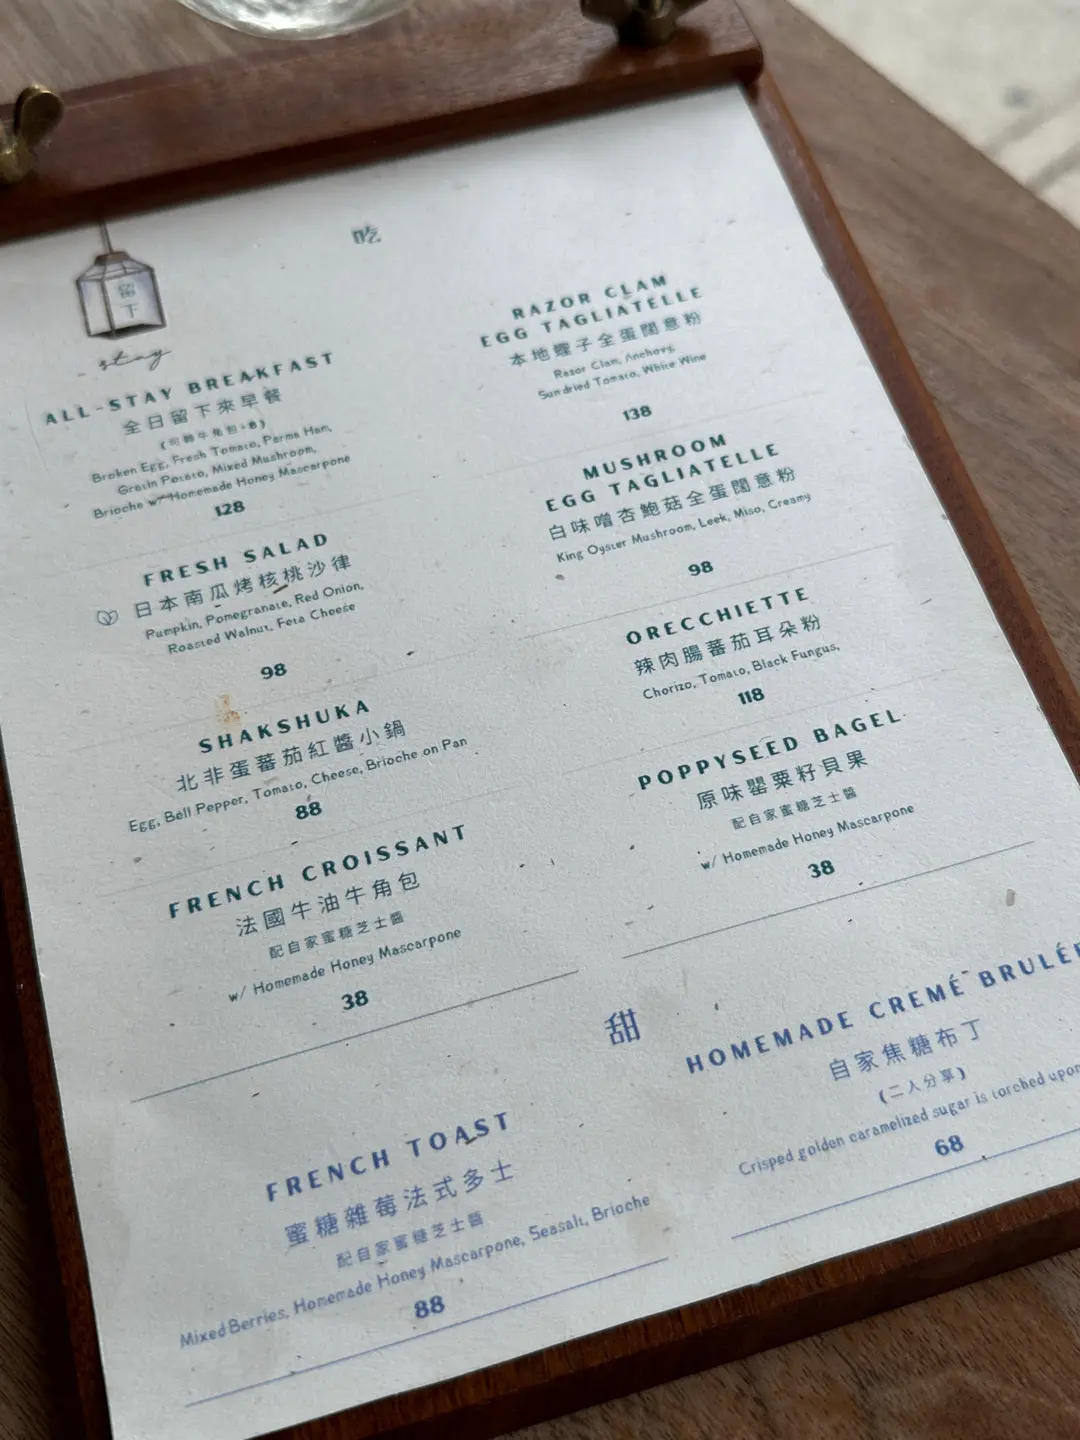 吃
留
下
stay
ALL-STAY BREAKFAST
全日留下來早餐
(可轉牛角包+8)
Broken Egg, Fresh Tomato, Parma Ham,
Gratin Potato, Mixed Mushroom,
Brioche w/ Homemade Honey Mascarpone
128
FRESH SALAD
日本南瓜烤核桃沙律
Pumpkin, Pomegranate, Red Onion,
Roasted Walnut, Feta Cheese
98
SHAKSHUKA
北非蛋蕃茄紅醬小鍋
Egg, Bell Pepper, Tomato, Cheese, Brioche on Pan
88
FRENCH CROISSANT
法國牛油牛角包
配自家蜜糖芝士醬
w/ Homemade Honey Mascarpone
38
RAZOR CLAM
EGG TAGLIATELLE
本地蟶子全蛋闊意粉
Razor Clam, Anchovy,
Sundried Tomato, White Wine
138
MUSHROOM
EGG TAGLIATELLE
白味噌杏鮑菇全蛋闊意粉
King Oyster Mushroom, Leek, Miso, Creamy
98
ORECCHIETTE
辣肉腸蕃茄耳朵粉
Chorizo, Tomato, Black Fungus,
118
POPPYSEED BAGEL
原味罌粟籽貝果
配自家蜜糖芝士醬
w/ Homemade Honey Mascarpone
38
甜
FRENCH TOAST
蜜糖雜莓法式多士
配自家蜜糖芝士醬
Mixed Berries, Homemade Honey Mascarpone, Seasalt, Brioche
88
HOMEMADE CREMÉ BRULÉE
自家焦糖布丁
(二人分享)
Crisped golden caramelized sugar is torched upon
68